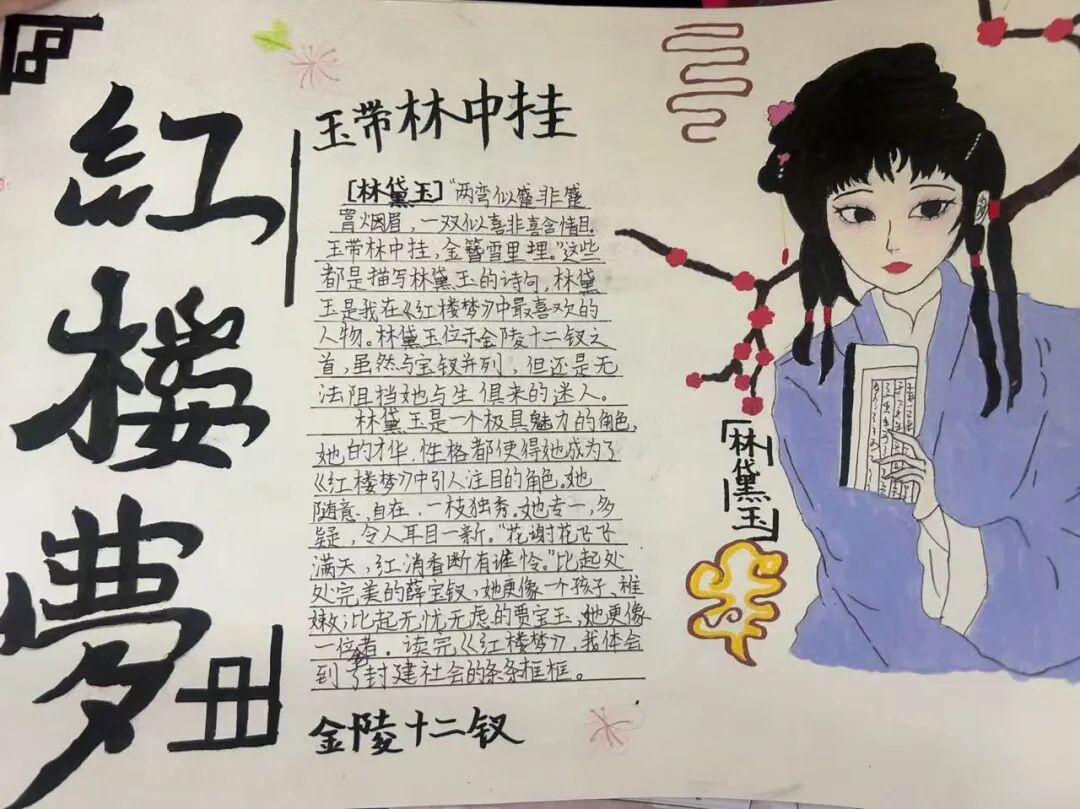 紅
楼
夢
玉带林中挂
[林黛玉]“两弯似蹙非蹙
罥烟眉，一双似喜非喜含情目
玉带林中挂，金簪雪里埋。”这些
都是描写林黛玉的诗句，林黛
玉是我在《红楼梦》中最喜欢的
人物。林黛玉位于金陵十二钗之
首，虽然与宝钗并列，但还是无
法阻挡她与生俱来的迷人。
林黛玉是一个极具魅力的角色，
她的才华，性格都使得她成为了
《红楼梦》中引人注目的角色。她
随意、自在，一枝独秀。她专一，多
疑，令人耳目一新。“花谢花飞飞
满天，红消香断有谁怜。”比起处
处完美的薛宝钗，她更像一个孩子、稚
嫩；比起无忧无虑的贾宝玉，她更像
一位者。读完《红楼梦》，我体会
到了封建社会的条条框框。
金陵十二钗
林黛玉